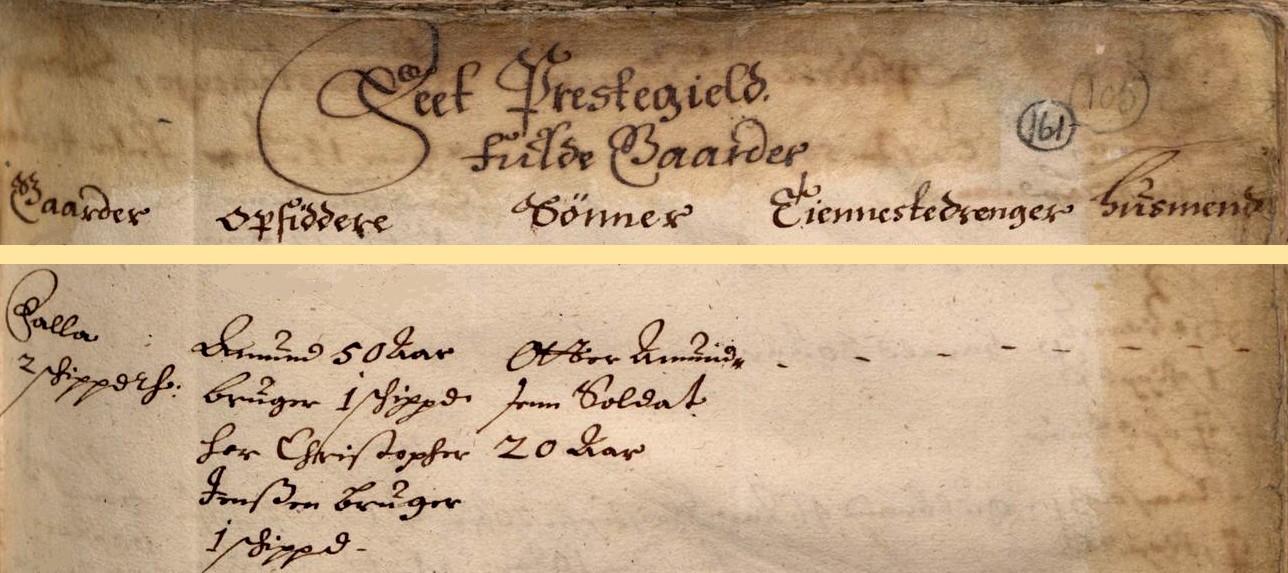 Seet Prestegield.
(106)
(161)
fulde Gaarder
Gaarder opsiddere Sönner Tiennestedrenger husmend
Falla Amund 50 Aar Otter Amunds
2 schippd th: bruger 1 schippd Sönn Soldat
her Christopher 20 Aar
Jenßen bruger
1 schippd